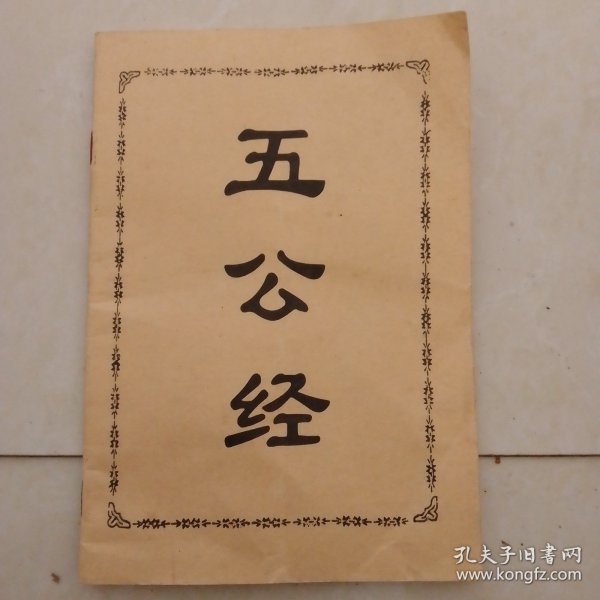 五公经
孔夫子旧书网
www.kongfz.com